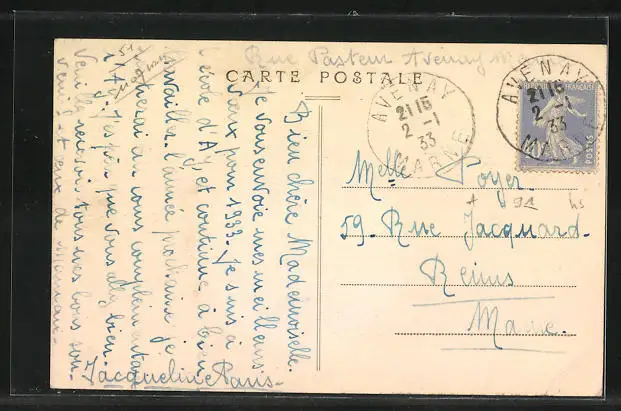 Rue Pasteur Avenay
CARTE POSTALE
Bien chère Mademoiselle
Je vous envoie mes meilleurs
vœux pour 1933. Je suis à
l'école d'Ay, et continue à bien
travailler. l'année prochaine je
au cours complémentaire
d'Ay. J'espère que vous allez bien.
tous mes bons sou-
venirs et ceux de Maman.
Jacqueline Paris-
AVENAY
21 15
2 -1
33
MARNE
AVENAY
21 15
2 -1
33
MARNE
RÉPUBLIQUE FRANÇAISE
POSTES
Melle Poyer
59- Rue Jacquard-
Reims
Marne.